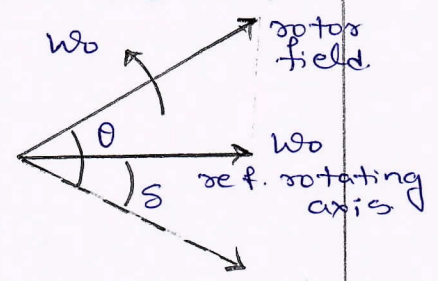 rotor
field
Wo
θ
Wo
ref. rotating
axis
δ